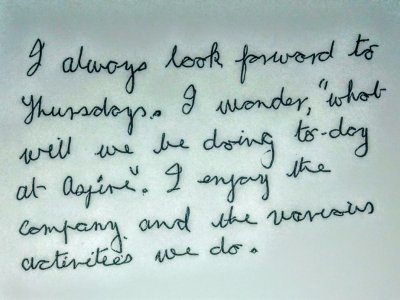 I always look forward to
Thursdays. I wonder, "what
will we be doing to-day
at Aspire". I enjoy the
company and the various
activities we do.